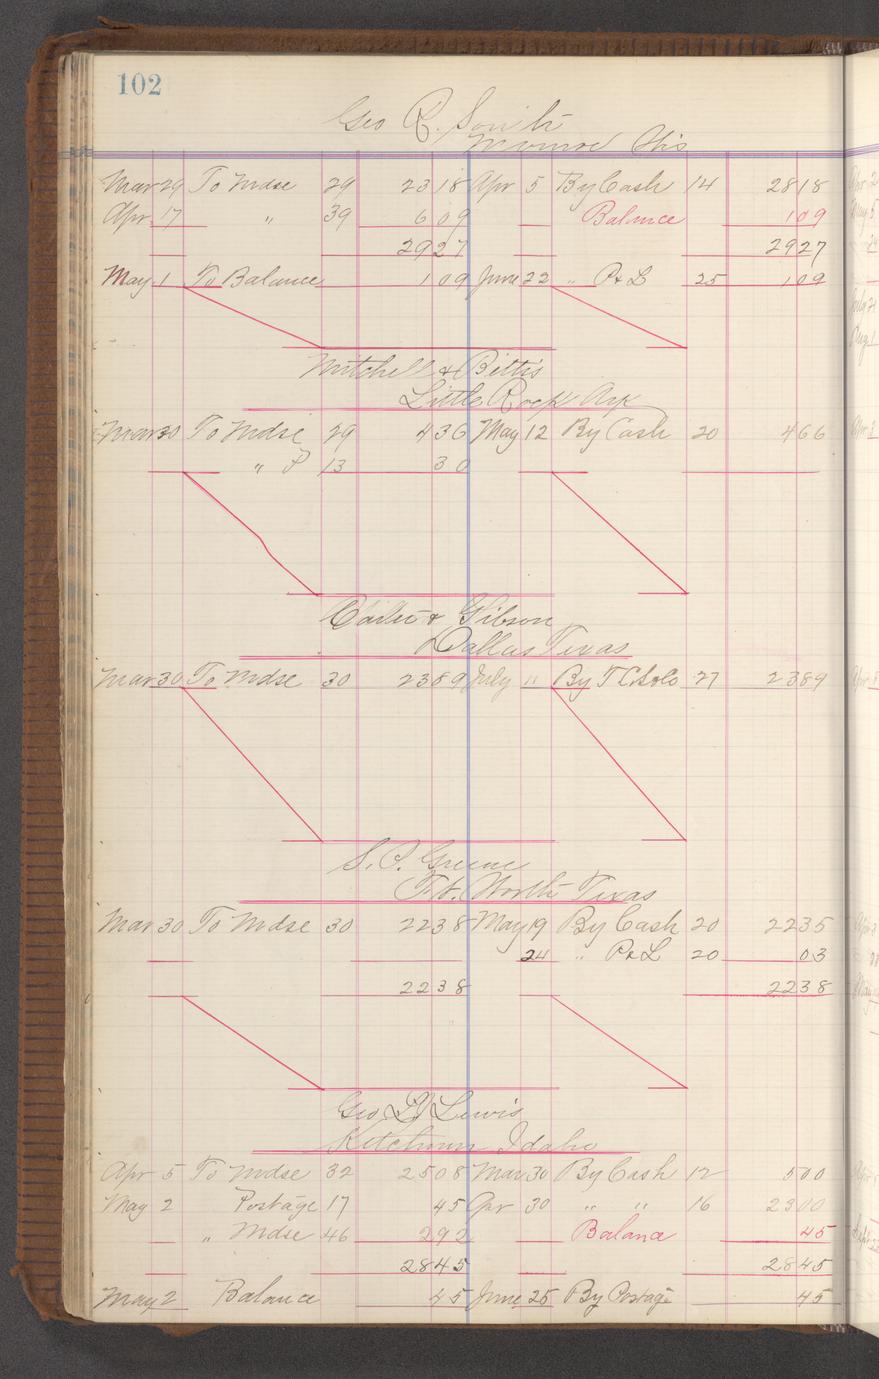 102
Geo R. Smith
Monroe Wis
Mar 29 To Mdse 29 2318 Apr 5 By Cash 14 2818
Apr 17 " 39 609 Balance 109
2927 2927
May 1 To Balance 109 June 22 " P&L 25 109
Mitchell & Bettis
Little Rock Ark
Mar 30 To Mdse 29 436 May 12 By Cash 20 466
" P 13 30
& Gibson
Dallas Texas
Mar 30 To Mdse 30 2389 July " By 27 2389
S. P. Greene
Ft. Worth Texas
Mar 30 To Mdse 30 2238 May 19 By Cash 20 2235
24 " P&L 20 03
2238 2238
Geo Lewis
Ketchum Idaho
Apr 5 To Mdse 32 2508 Mar 30 By Cash 12 500
May 2 Postage 17 45 Apr 30 " " 16 2300
" Mdse 46 292 Balance 45
2845 2845
May 2 Balance 45 June 25 By Postage 45